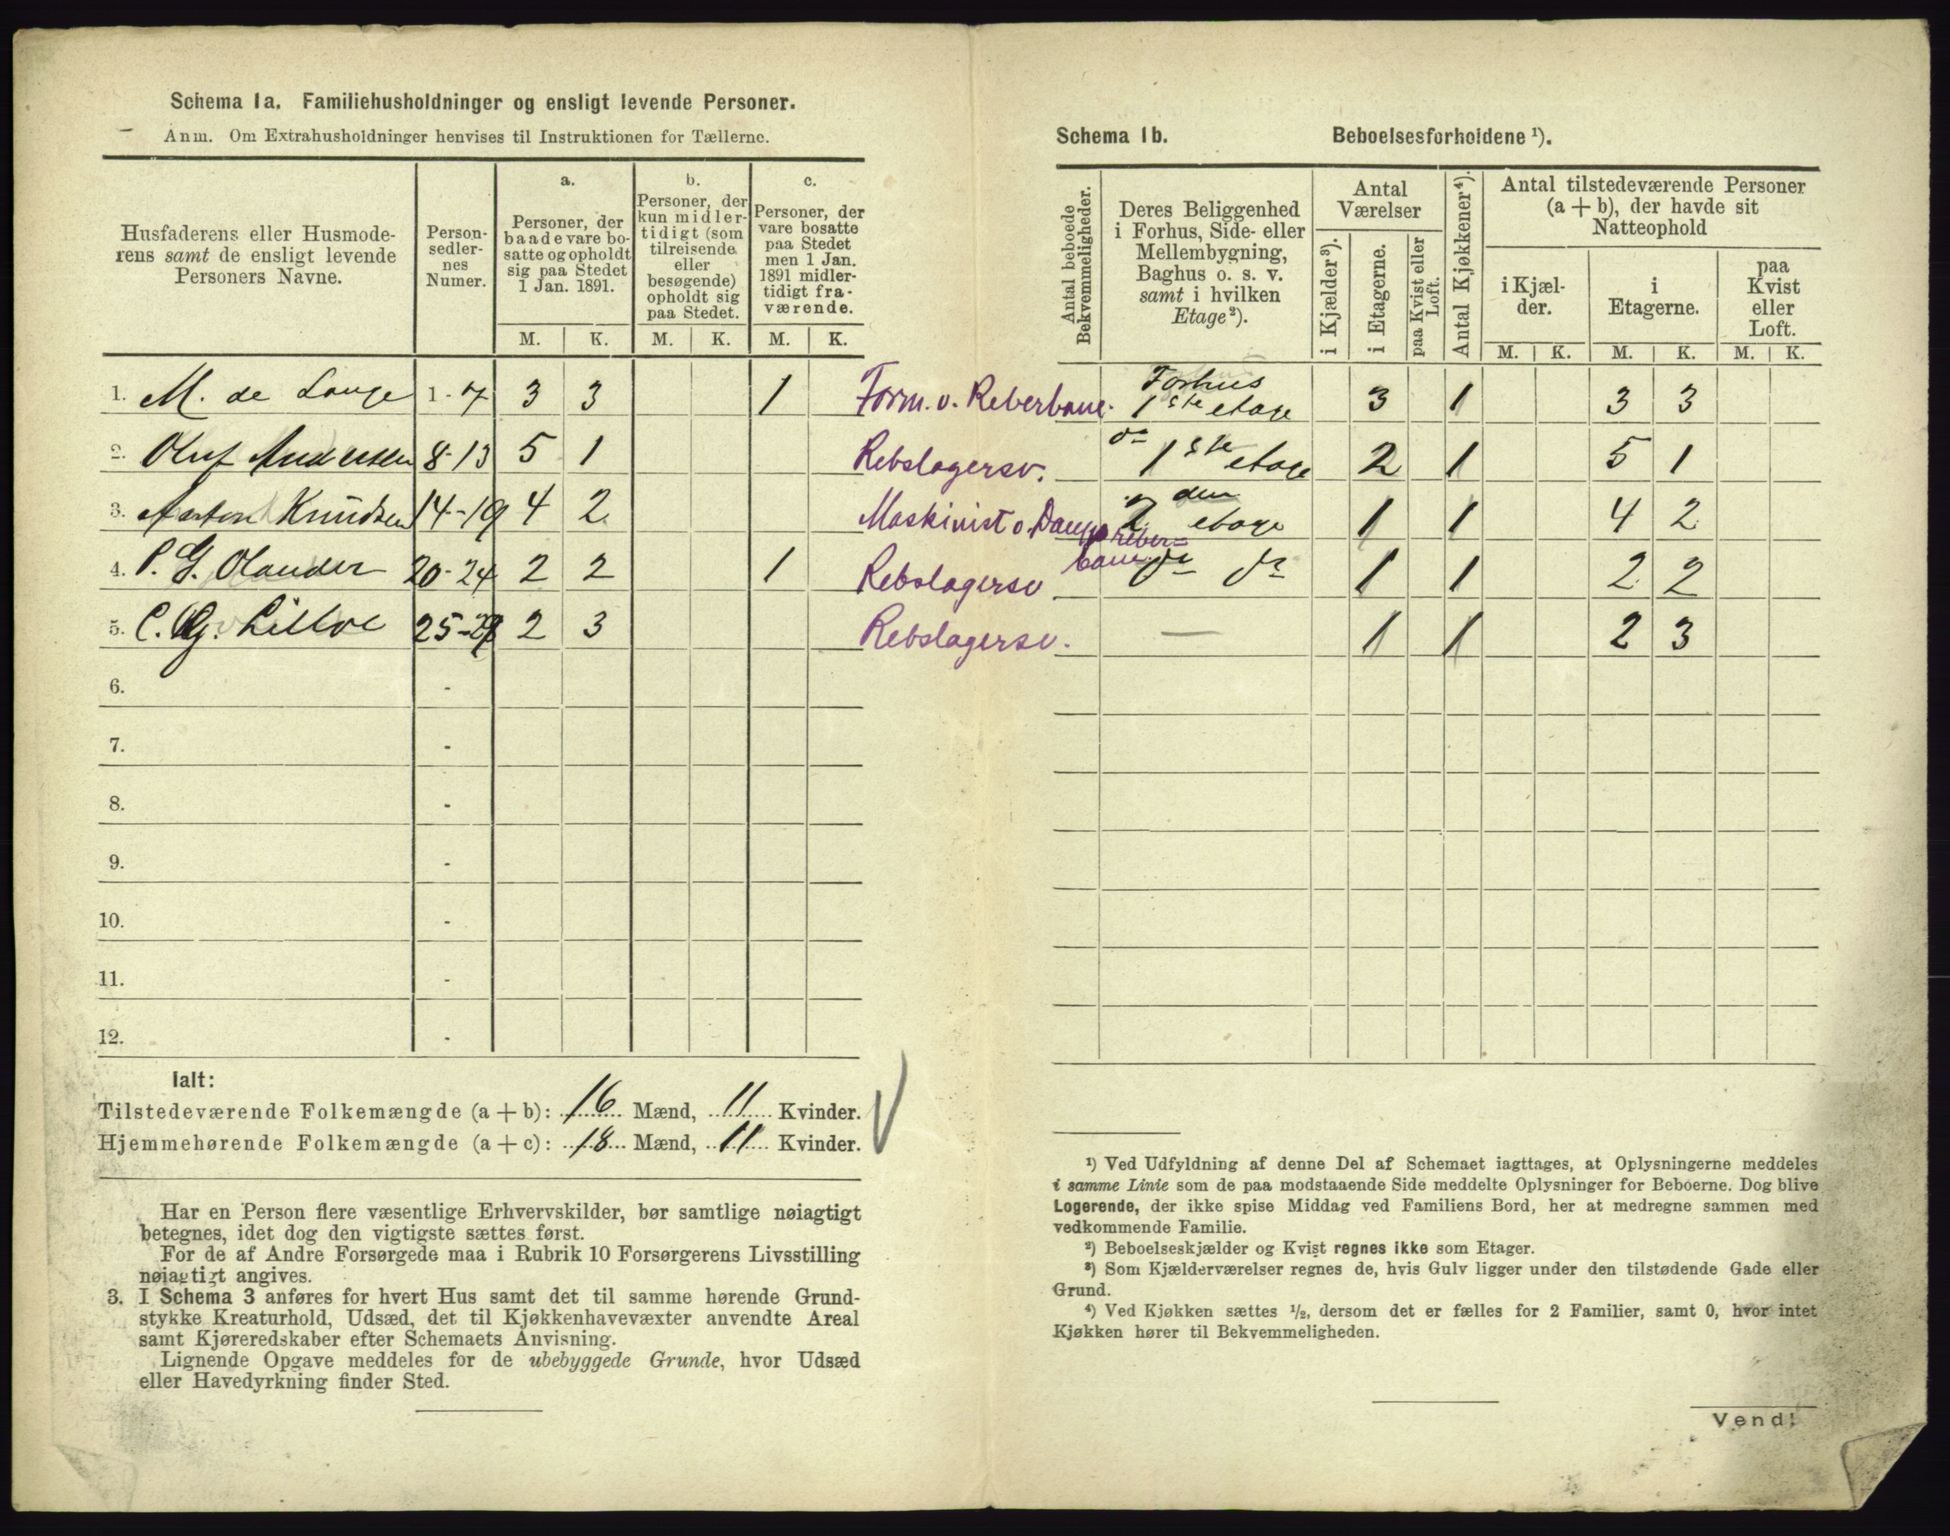 Schema 1a. Familiehusholdninger og ensligt levende Personer.
Anm. Om Extrahusholdninger henvises til Instruktionen for Tællerne.
Husfaderens eller Husmoderens samt de ensligt levende Personers Navne.
Person-sedlernes Numer.
a. Personer, der baade vare bosatte og opholdt sig paa Stedet 1 Jan. 1891.
b. Personer, der kun midlertidigt (som tilreisende eller besøgende) opholdt sig paa Stedet.
c. Personer, der vare bosatte paa Stedet men 1 Jan. 1891 midlertidigt fraværende.
M. K. M. K. M. K.
1. M. de Lange 1-7 3 3 1 Form. v. Reberbane.
2. Oluf Andersen 8-13 5 1 Rebslagersv.
3. Anton Knudsen 14-19 4 2 Maskinist v. Dampreberbane
4. P. G. Olander 20-24 2 2 1 Rebslagersv.
5. C. G. 25-29 2 3 Rebslagersv.
6. -
7. -
8. -
9. -
10. -
11.
12. -
Ialt:
Tilstedeværende Folkemængde (a + b): 16 Mænd, 11 Kvinder.
Hjemmehørende Folkemængde (a + c): 18 Mænd, 11 Kvinder.
Har en Person flere væsentlige Erhvervskilder, bør samtlige nøiagtigt
betegnes, idet dog den vigtigste sættes først.
For de af Andre Forsørgede maa i Rubrik 10 Forsørgerens Livsstilling
nøiagtigt angives.
3. I Schema 3 anføres for hvert Hus samt det til samme hørende Grund-
stykke Kreaturhold, Udsæd, det til Kjøkkenhavevæxter anvendte Areal
samt Kjøreredskaber efter Schemaets Anvisning.
Lignende Opgave meddeles for de ubebyggede Grunde, hvor Udsæd
eller Havedyrkning finder Sted.
Schema 1b. Beboelsesforholdene ¹).
Antal beboede Bekvemmeligheder.
Deres Beliggenhed i Forhus, Side- eller Mellembygning, Baghus o. s. v. samt i hvilken Etage ²).
Antal Værelser
i Kjælder ³).
i Etagerne.
paa Kvist eller Loft.
Antal Kjøkkener ⁴).
Antal tilstedeværende Personer (a + b), der havde sit Natteophold
i Kjælder.
i Etagerne.
paa Kvist eller Loft.
M. K. M. K. M. K.
Forhus 1ste etage 3 1 3 3
do 1ste etage 2 1 5 1
2den etage 1 1 4 2
do do 1 1 2 2
— 1 1 2 3
¹) Ved Udfyldning af denne Del af Schemaet iagttages, at Oplysningerne meddeles
i samme Linie som de paa modstaaende Side meddelte Oplysninger for Beboerne. Dog blive
Logerende, der ikke spise Middag ved Familiens Bord, her at medregne sammen med
vedkommende Familie.
²) Beboelseskjælder og Kvist regnes ikke som Etager.
³) Som Kjælderværelser regnes de, hvis Gulv ligger under den tilstødende Gade eller
Grund.
⁴) Ved Kjøkken sættes ½, dersom det er fælles for 2 Familier, samt 0, hvor intet
Kjøkken hører til Bekvemmeligheden.
Vend!